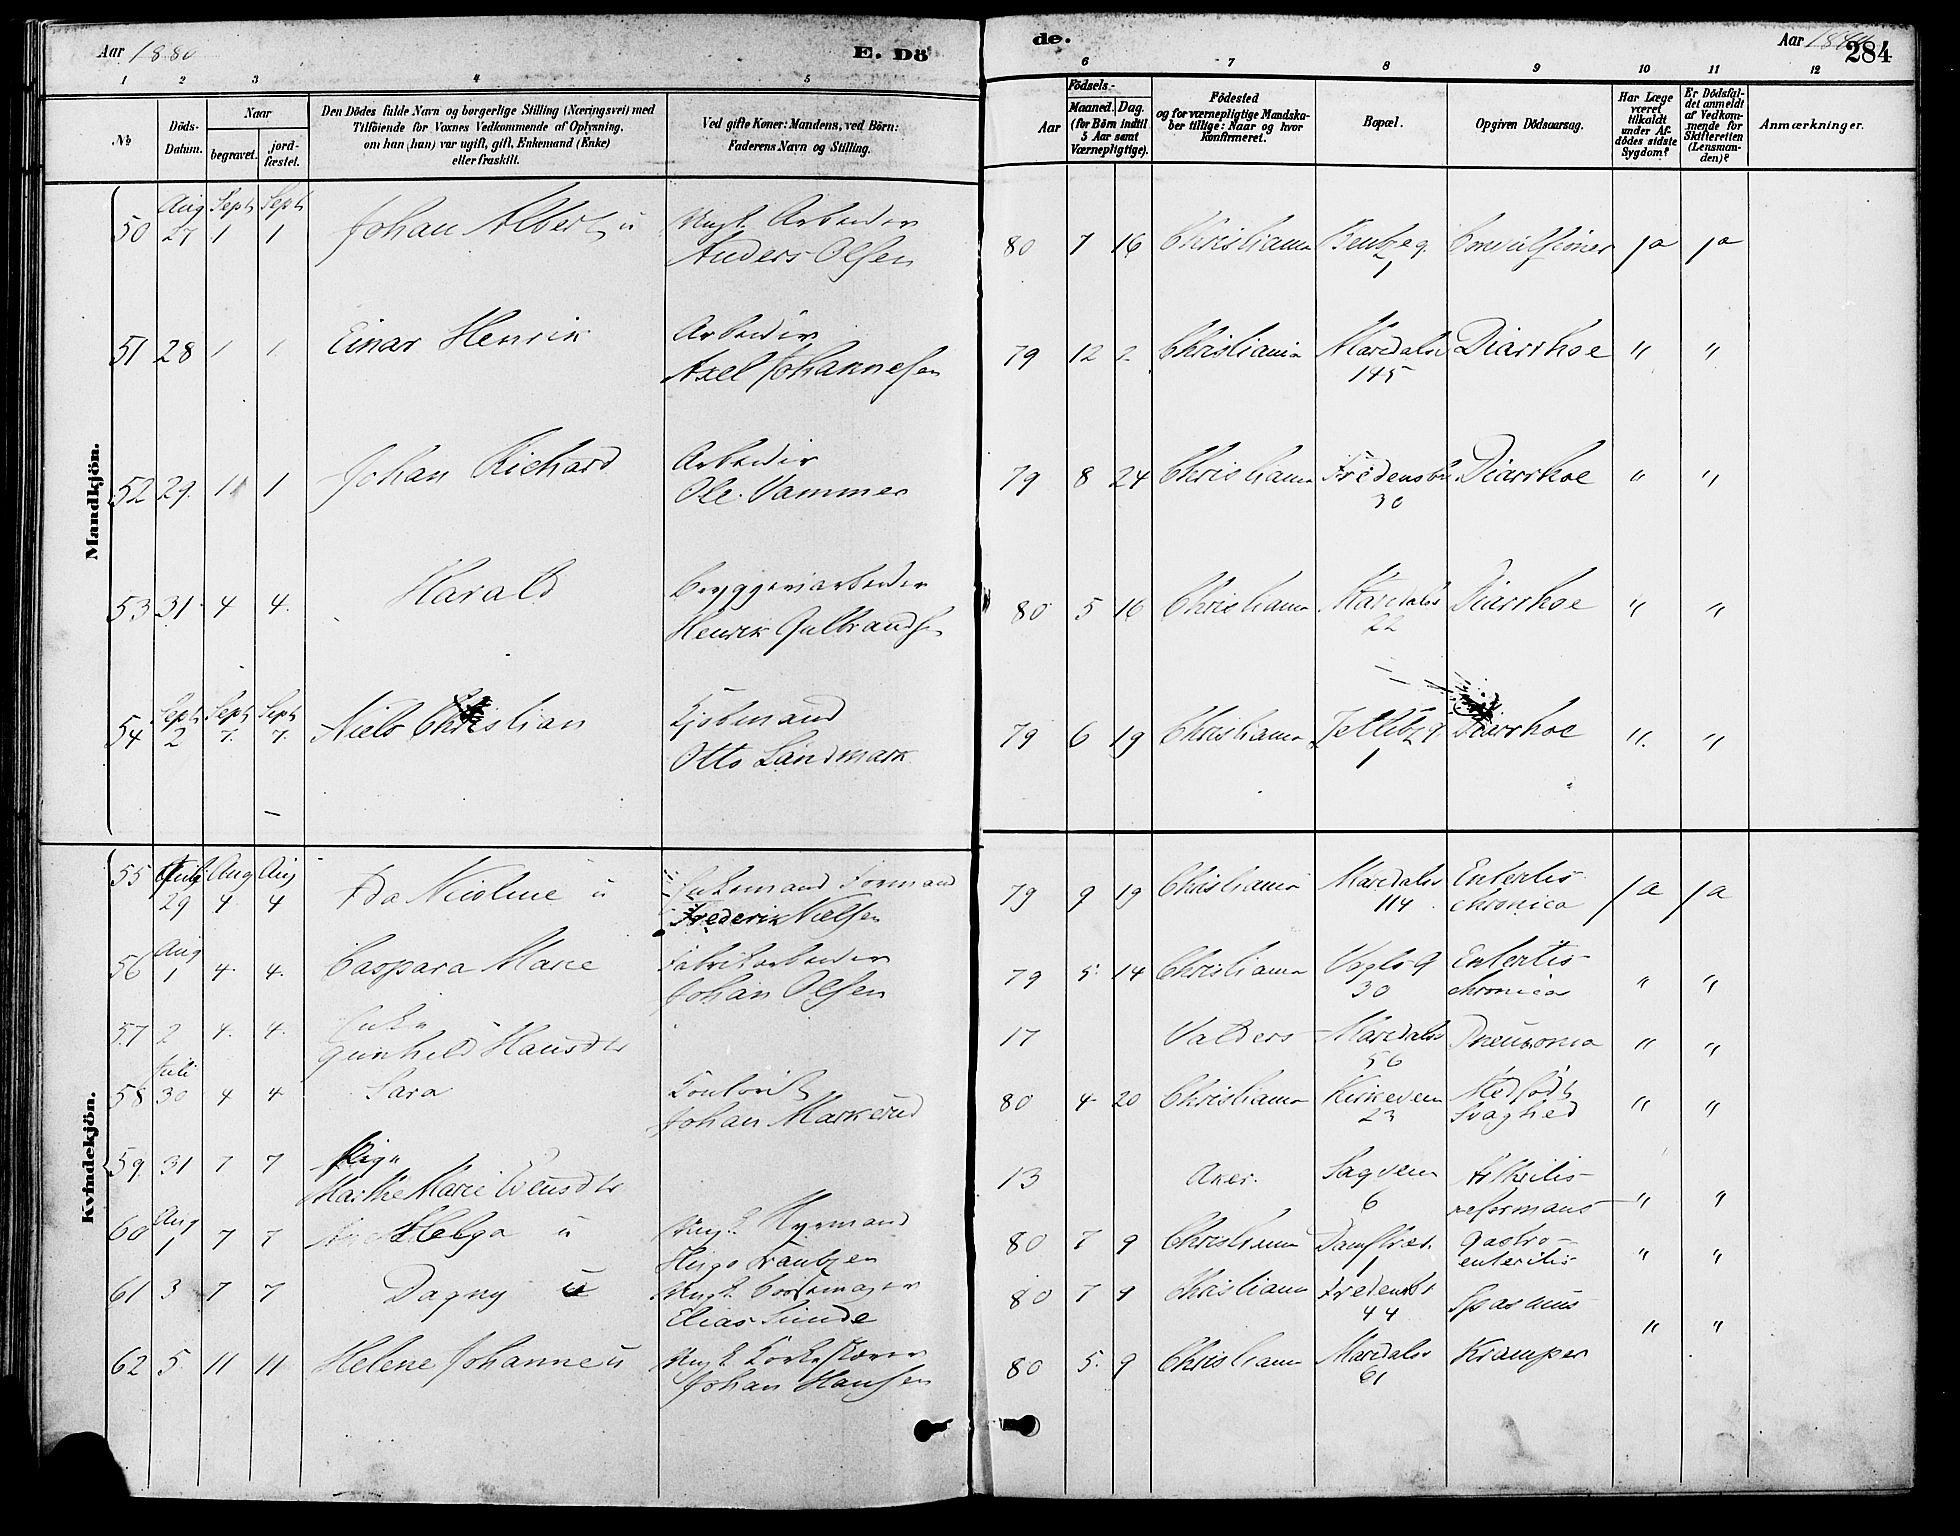 Aar 1880
E. Dö
de.
Aar
284
1 2 3 4 5 6 7 8 9 10 11 12
No
Döds-
Datum.
Naar
begravet.
jord-
fæstet.
Den Dödes fulde Navn og borgerlige Stilling (Næringsvei) med
Tilföiende for Voxnes Vedkommende af Oplysning,
om han (hun) var ugift, gift, Enkemand (Enke)
eller fraskilt.
Ved gifte Koner: Mandens, ved Börn:
Faderens Navn og Stilling.
Födsels-
Aar
Maaned. Dag.
(for Børn indtil
5 Aar samt
Værnepligtige).
Födested
og for værnepligtige Mandska-
ber tillige: Naar og hvor
konfirmeret.
Bopæl.
Opgiven Dödsaarsag.
Har Læge
været
tilkaldt
under Af-
dödes sidste
Sygdom?
Er Dödsfal-
det anmeldt
af Vedkom-
mende for
Skifteretten
(Lensman-
den)?
Anmærkninger.
Mandkjön.
Aug Sept Sept
50 27 1 1 Johan Albert u Ugt. Arbeider
Anders Olsen
80 7 16 Christiania 1 Convulsioner ja ja
51 28 1 1 Einar Henrik Arbeider
Axel Johannesen
79 12 2 Christiania Maridalsv Diarrhoe " "
145
52 29 1 1 Johan Richard Arbeider
Ole Vammen
79 8 24 Christiania Fredensb Diarrhoe " "
30
53 31 4 4 Harald Bryggeriarbeider
Henrik Gulbrandsen
80 5 16 Christiania Maridalsv Diarrhoe " "
22
Sept Sept Sept
54 2 7 7 Niels Christian Kjøbmand
Otto Landmark
79 6 19 Christiania Diarrhoe " "
1
Kvindekjön.
55 Juli Aug Aug
29 4 4 Ida Nicoline u Enkemand Formand
Frederik Nielsen
79 9 19 Christiania Maridalsv Enteritis ja ja
114 chronica
Aug
56 1 4 4 Caspara Marie Fabrikarbeider
Johan Olsen
79 5 14 Christiania Vogts g Enteritis
30 chronica " "
57 2 4 4 Enke
Gunhild Hansdtr
17 Valders Maridalsv Pneumonia " "
56
Juli
58 30 4 4 Sara Kontorist
Johan Markerud
80 4 20 Christiania Kirkeveien Medfødt
23 Svaghed " "
59 31 7 7 Pige
Marthe Marie Evensdtr
13 Aker. Sagveien Arthritis
6 deformans " "
Aug
60 1 7 7 Helga u Ugt. Hyrmand
Hugo
80 7 9 Christiania 1 Gastro-
enteritis " "
61 3 7 7 Dagny u Ugt. Børstemager
Elias Sunde
80 7 9 Christiania Fredensb Spasmus
44 " "
62 5 11 11 Helene Johanne u Ugt. Korkskærer
Johan Hansen
80 5 9 Christiania Maridalsv Kramper
61